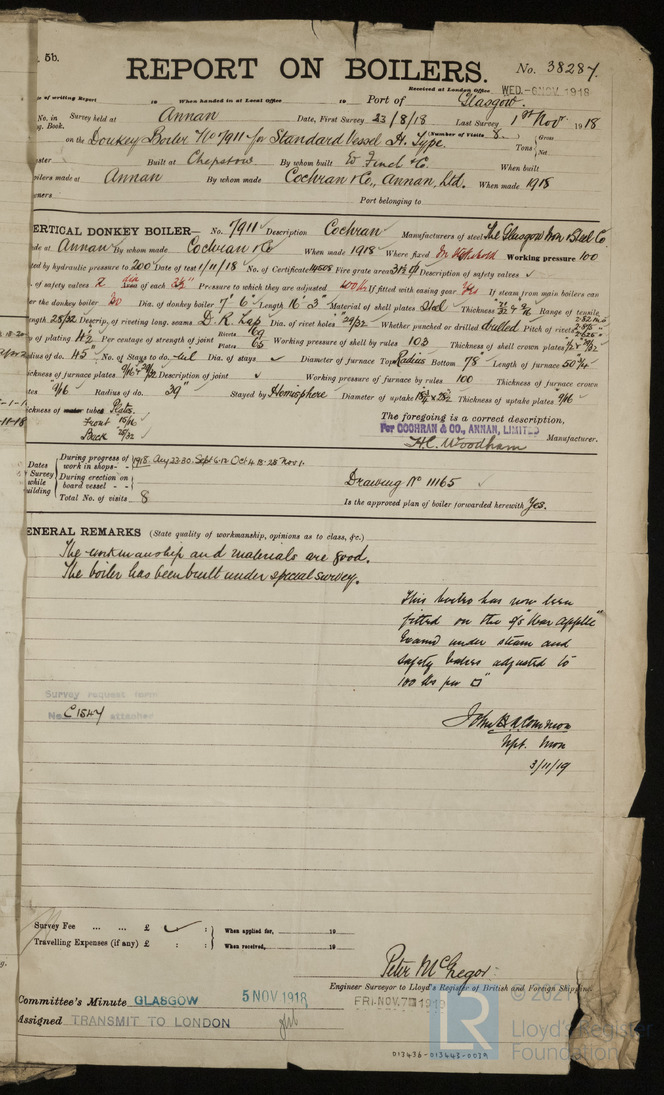 5b.
REPORT ON BOILERS.
No. 38287.
Received at London Office WED. 6 NOV. 1918
of writing Report 19 When handed in at Local Office 19 Port of Glasgow.
No. in Survey held at Annan Date, First Survey 23/8/18 Last Survey 1st Nov. 1918
Book. (Number of Visits 8.)
on the Donkey Boiler No 7911 for Standard Vessel H. Type. Tons Gross Net
Built at Chepstow By whom built Ed Finch & Co. When built
Boilers made at Annan By whom made Cochran & Co., Annan, Ltd. When made 1918
Owners Port belonging to
VERTICAL DONKEY BOILER— No. 7911 Description Cochran Manufacturers of steel The Glasgow Iron & Steel Co.
Made at Annan By whom made Cochran & Co When made 1918 Where fixed In Stokehold Working pressure 100
tested by hydraulic pressure to 200 Date of test 1/11/18 No. of Certificate Fire grate area Description of safety valves
of safety valves 2 of each Pressure to which they are adjusted 100 lbs If fitted with easing gear Yes If steam from main boilers can
enter the donkey boiler No Dia. of donkey boiler 7' 6" Length 16' 3" Material of shell plates Steel Thickness Range of tensile
strength 28/32 Descrip. of riveting long. seams D. R. Lap Dia. of rivet holes 29/32 Whether punched or drilled drilled Pitch of rivets
of plating 4½ Per centage of strength of joint Rivets 69 Plates 65 Working pressure of shell by rules 103 Thickness of shell crown plates
Radius of do. 45" No. of Stays to do. nil Dia. of stays Diameter of furnace Top Radius Bottom 78" Length of furnace
Thickness of furnace plates Description of joint Working pressure of furnace by rules 100 Thickness of furnace crown
plates 9/16 Radius of do. 39" Stayed by Hemisphere Diameter of uptake Thickness of uptake plates 9/16
Thickness of water tubes Plates.
Front 15/16
Back 25/32
The foregoing is a correct description,
For COCHRAN & CO., ANNAN, LIMITED
H.C. Woodham Manufacturer.
Dates of Survey while building
During progress of work in shops - - 1918. Aug 23.30. Sept 6.12. Oct 4.18.25. Nov 1.
During erection on board vessel - - -
Total No. of visits 8
Drawing No 11165
Is the approved plan of boiler forwarded herewith Yes.
GENERAL REMARKS (State quality of workmanship, opinions as to class, &c.)
The workmanship and materials are good.
The boiler has been built under special survey.
This boiler has now been
fitted on the "War Apple"
Examd under steam and
safety valves adjusted to
100 lbs per □"
Survey request form
No. C1547 attached
Npt. Mon
3/11/19
Survey Fee ... ... £ : : When applied for, 19
Travelling Expenses (if any) £ : : When received, 19
Peter McGregor.
Engineer Surveyor to Lloyd's Register of British and Foreign Shipping.
Committee's Minute GLASGOW 5 NOV 1918 FRI. NOV. 7
Assigned TRANSMIT TO LONDON
LR
© 2021
Lloyd's Register
Foundation
013436-013443-0039